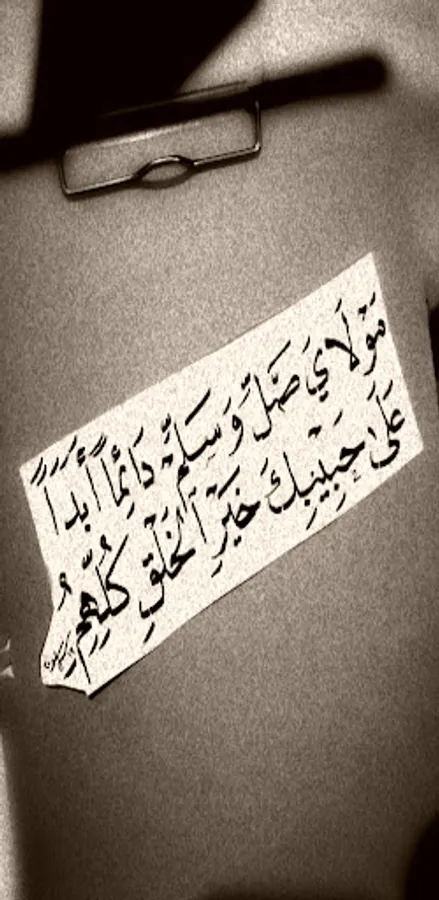 مَوْلَايَ صَلِّ وَسَلِّمْ دَائِمًا أَبَدًا
عَلَى حَبِيبِكَ خَيْرِ الْخَلْقِ كُلِّهِمُ